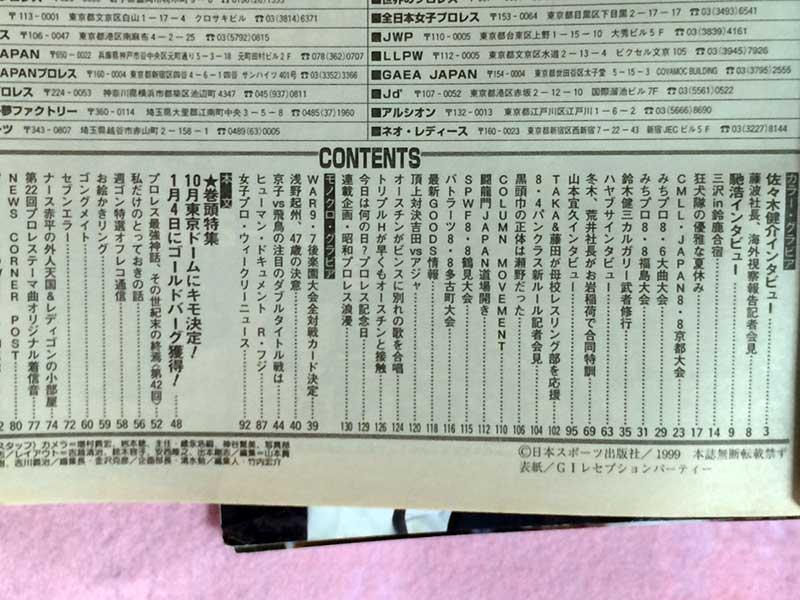 〒113-0001 東京都文京区白山1-7-4 クロサキビル ☎03(3814)6371
ス 〒106-0047 東京都港区南麻布4-2-25 ☎03(5793)0815
JAPAN 〒650-0022 兵庫県神戸市谷中央区元町通り5-1-3 元町田村ビル2F ☎078(362)0707
APANプロレス 〒160-0004 東京都新宿区四谷4-6-1 四谷サンハイツ401号 ☎03(3352)3366
プロレス 〒224-0053 神奈川県横浜市都筑区池辺町4347 ☎045(937)0811
夢ファクトリー 〒360-0114 埼玉県大里郡江南町中央3-5-8 ☎0485(37)1960
ーツ 〒343-0807 埼玉県越谷市赤山町2-158-1 ☎0489(63)0005
■全日本女子プロレス 〒153-0064 東京都目黒区下目黒2-17-17 ☎03(3493)6541
■JWP 〒110-0005 東京都台東区上野1-1-10 大秀ビル5F ☎03(3839)4161
■LLPW 〒112-0005 東京都文京区水道2-13-4 ピクセル文京105 ☎03(3945)7926
■GAEA JAPAN 〒154-0004 東京都世田谷区太子堂5-15-3 COVAMOC BUILDING ☎03(3795)2555
■Jd' 〒107-0052 東京都港区赤坂2-12-10 国際溜池ビル7F ☎03(5561)0522
■アルシオン 〒132-0013 東京都江戸川区江戸川1-6-2 ☎03(5666)8690
■ネオ・レディース 〒160-0023 東京都新宿区西新宿7-22-43 新宿JECビル5F ☎03(3227)8144
CONTENTS
カラー・グラビア
佐々木健介インタビュー 3
藤波社長、海外視察報告記者会見 8
馳浩インタビュー 9
三沢in鈴鹿合宿 14
狂犬隊の優雅な夏休み 17
CMLL・JAPAN8・8京都大会 23
みちプロ8・6大曲大会 29
みちプロ8・8福島大会 31
鈴木健三カルガリー武者修行 35
ハヤブサインタビュー 63
冬木、荒井社長がお岩稲荷で合同特訓 69
山本宜久インタビュー 95
TAKA&藤田が母校レスリング部を応援 102
8・4パンクラス新ルール記者会見 104
黒頭巾の正体は瀬野だった 106
COLUMN MOVEMENT 110
闘龍門JAPAN道場開き 112
SPWF8・8鶴見大会 114
バトラーツ8・8多古町大会 116
最新GOODS情報 118
頂上対決吉田vsアジャ 120
オースチンがビンスに別れの歌を合唱 124
トリプルHが早くもオースチンと接触 126
今日は何の日?プロレス記念日 129
連載企画・昭和プロレス浪漫 130
モノクロ・グラビア
WAR9・7後楽園大会全対戦カード決定 39
浅野起州、47歳の決意 40
京子vs飛鳥の注目のダブルタイトル戦は 44
ヒューマン・ドキュメント R・フジ 87
女子プロ・ウィークリーニュース 92
本文
★巻頭特集
10月東京ドームにキモ決定!
1月4日にゴールドバーグ獲得! 48
プロレス最強神話、その世紀末の終焉〈第42回〉 52
私だけのとっておきの話 56
週ゴン特選オフレコ通信 58
お絵かきリング 59
ゴングメイト 60
セブンエラー 72
ナース赤平の外人天国&レディゴンの小部屋 74
第22回プロレステーマ曲オリジナル着信音 77
NEWS CORNER POST 80
©日本スポーツ出版社/1999 本誌無断転載禁ず
表紙/G1レセプションパーティー